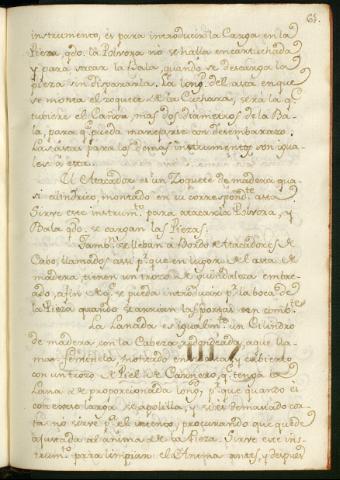 61.
instrumento, és para introducir la Carga en la
Pieza, qdo. la Polvora no se halla encartuchada
y para sacar la Bala, quando se descarga la
pieza sin dispararla. La longd. del asta en que
se monta el zoquete de la Cuchara, será la qe.
tubiere el Cañon, mas dos diametros de la Ba-
la, para qe. pueda manejarse con desembarazo.
Las astas para los demas instrumentos son igua-
les á esta.
El Atacador es un Zoquete de madera qua-
si cilindrico, montado en su correspondte. asta
Sirve este instrumto. para atacar la Polvora, y
Bala qdo. se cargan las Piezas.
Tambn. se lleban a bordo Atacadores de
Cabo, llamados asi pr. que en lugar del asta de
madera tienen un trozo de guindaleza embre-
ado, afin de qe. se pueda introducir pr. la boca de
la Pieza quando se atacan las portas en combte.
La Lanada es igualmte. un Cilindro
de madera con la Cabeza redondeada, aque lla-
man feminela, montado en asta, y cubierto
con un trozo de Piel de Carnero, qe. tenga la
Lana de proporcionada longd. pr. que quando es
con exceso larga se apolilla, y si es demasiado co-
rta no sirve pa. el intento, procurando que quede
ajustada al anima de la Pieza. Sirve este ins-
trumto. para limpiar el Anima antes, y despues